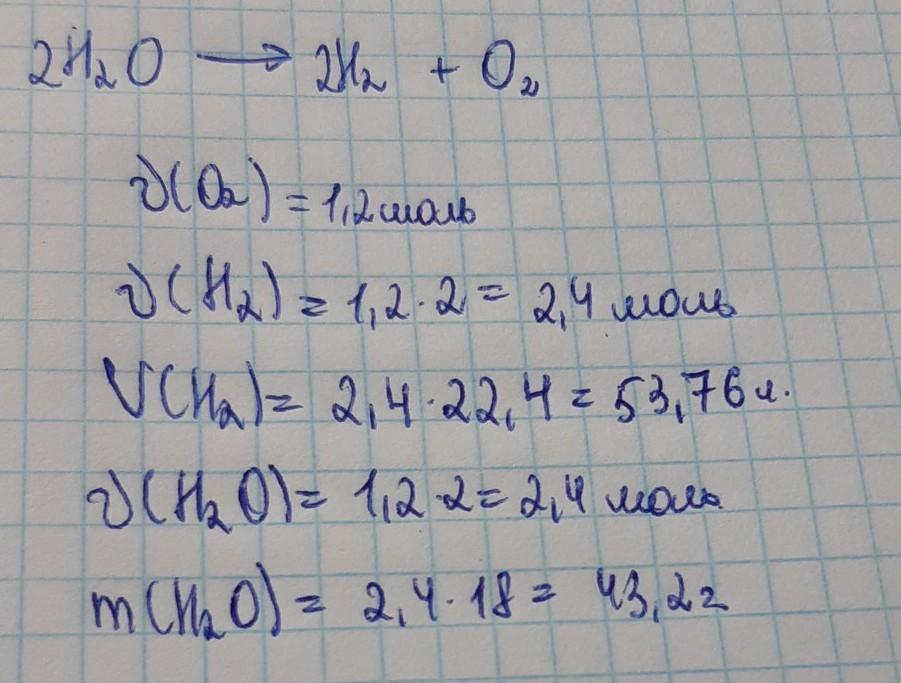 2H₂O → 2H₂ + O₂
ν(O₂) = 1,2 моль
ν(H₂) = 1,2 · 2 = 2,4 моль
V(H₂) = 2,4 · 22,4 = 53,76 л.
ν(H₂O) = 1,2 · 2 = 2,4 моль
m(H₂O) = 2,4 · 18 = 43,2 г